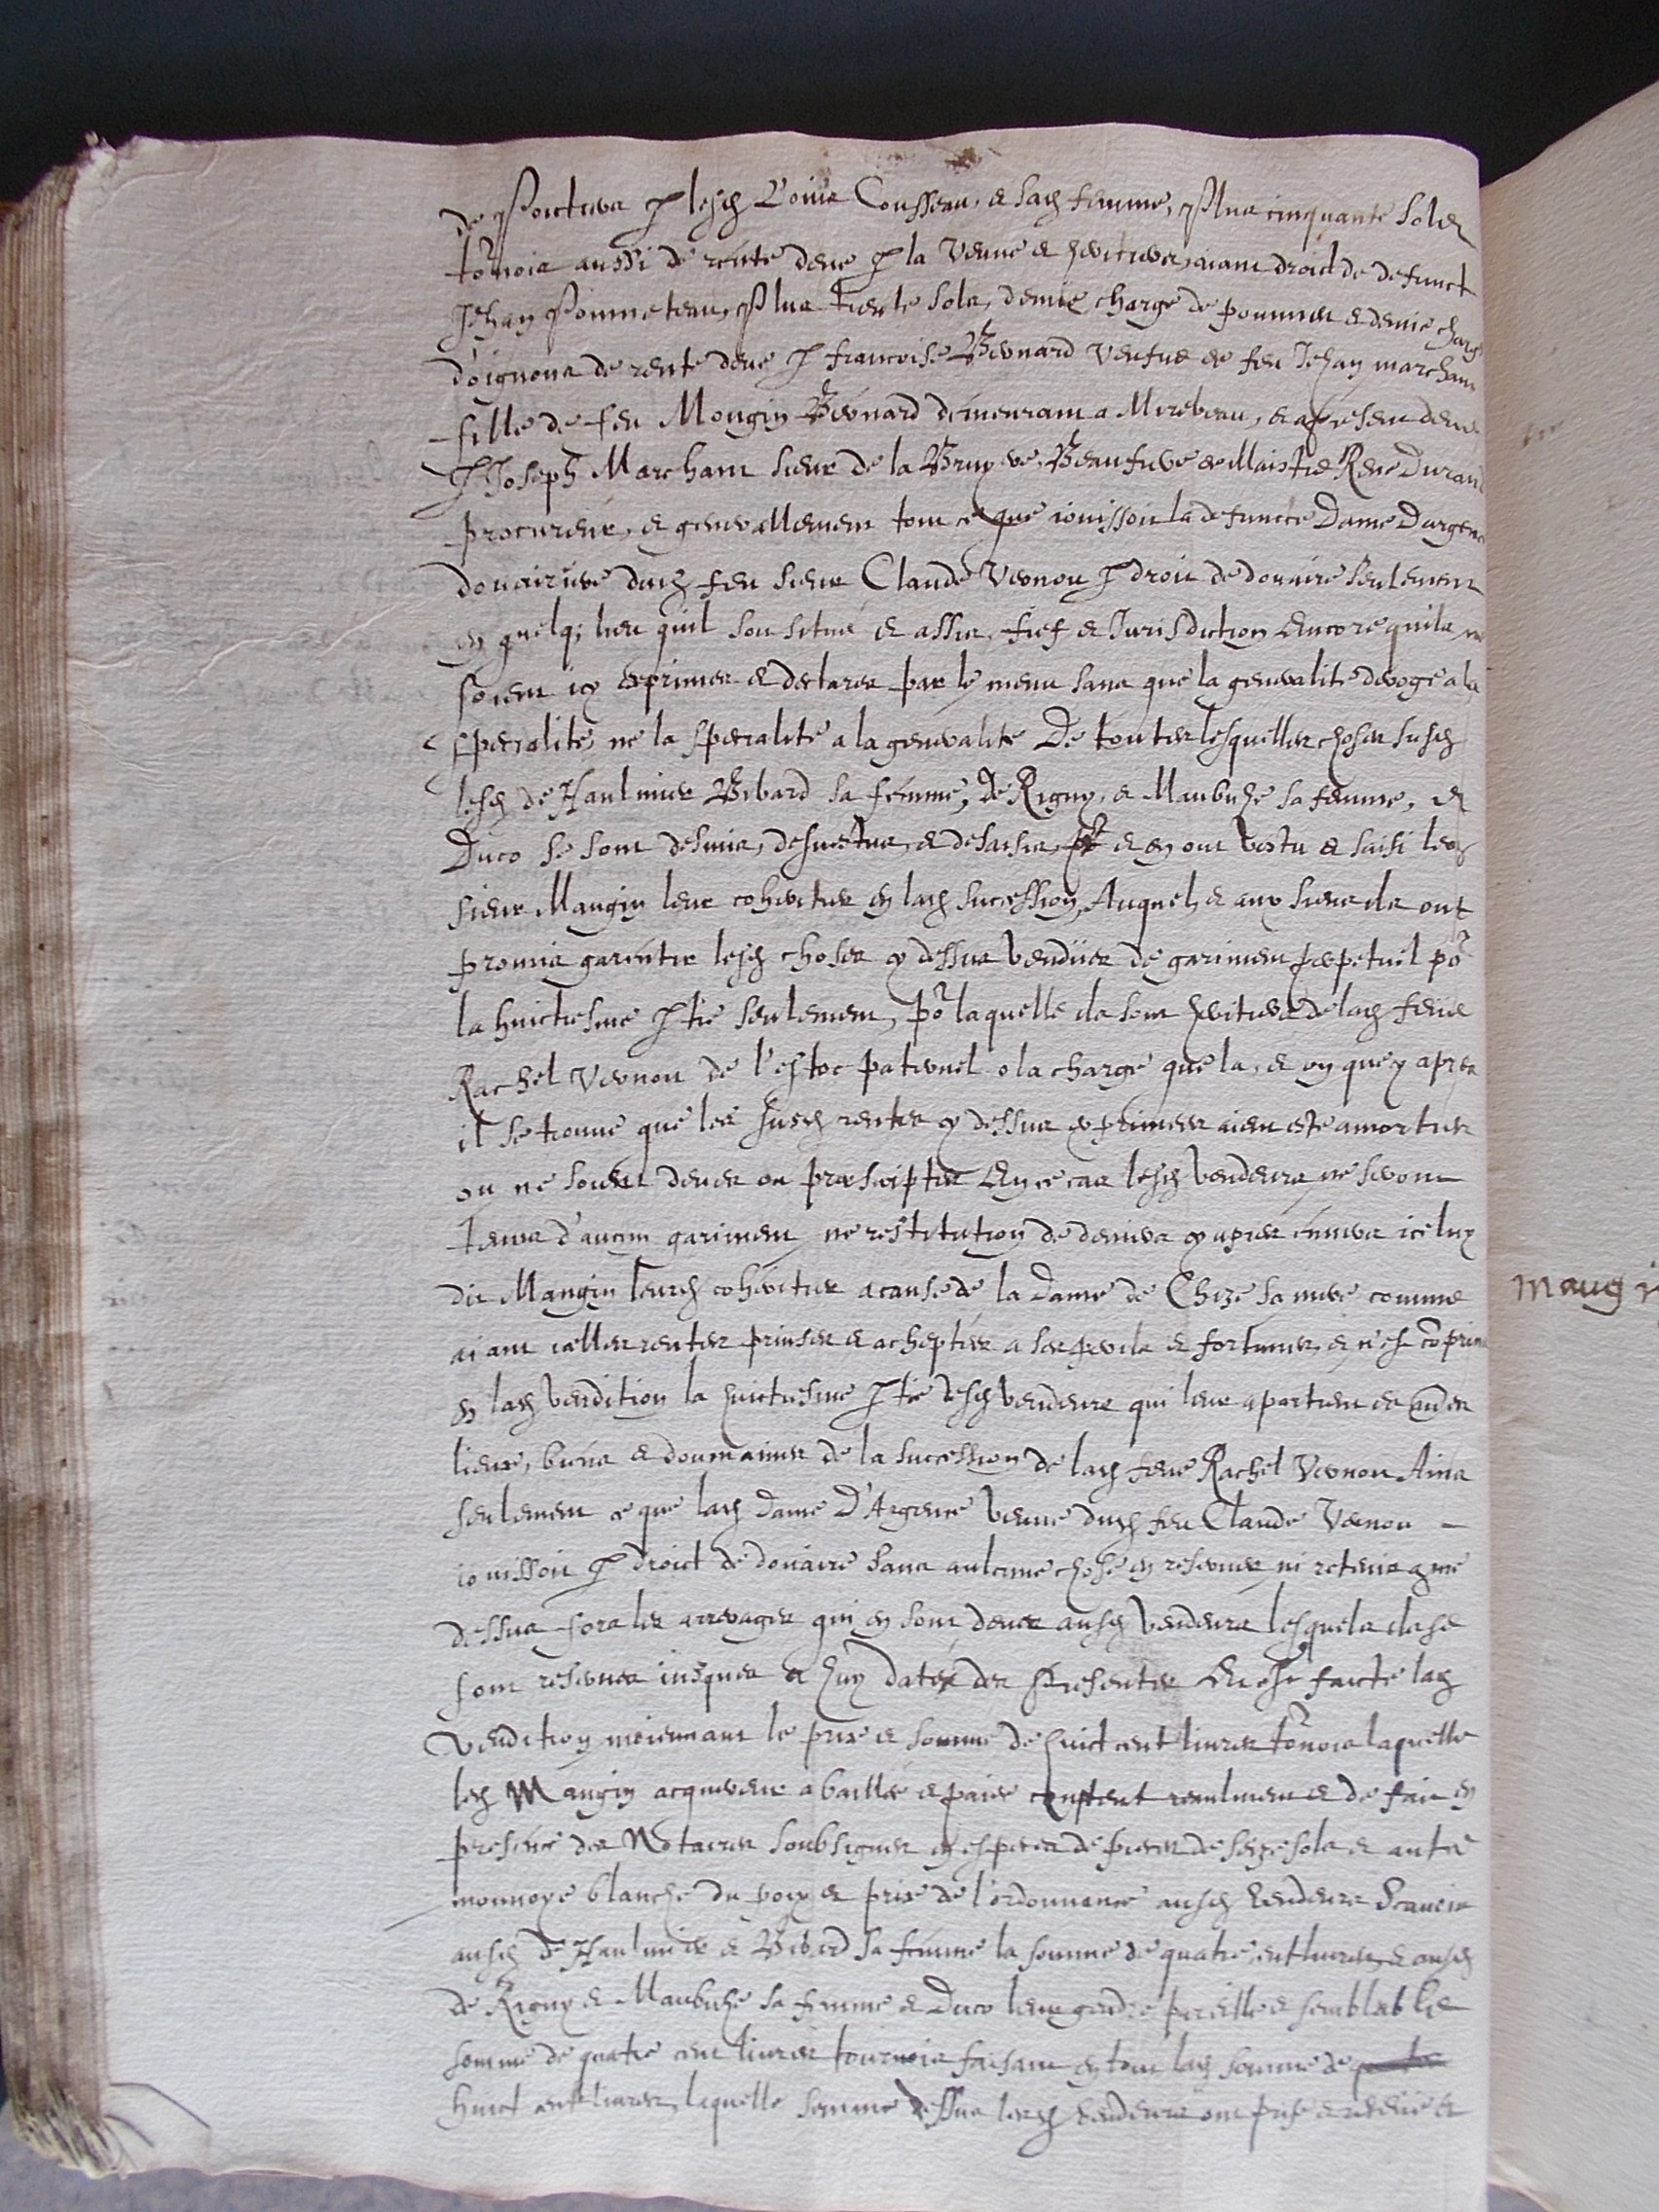 de Poictiers p lesd Louis Cousseau, & sad femme, Plus cinquante solz
tornois aussi de rente deue p la veuve & heritiers, aiant droict de defunct
Jehan Pommeteau, Plus trente sols, demie charge de pommes & demie charge
d'oignons de rente deue p francoise Bernard veufue de feu Jehan marchant
fille de feu Mongin Bernard demeurant a Mirebeau, & apresent deue
p Joseph Marchant sieur de la Bruyere, Beaufrere & Maistre Rene Durand
procureur, & generallement tout ce que iouissoit la defuncte Dame Dargence
douairiere dud feu sieur Claude Vernou p droit de douaire seulement
en quelq; lieu quil soit situé & assis, fief & Jurisdiction Encore quils ne
soient icy exprimez & declarez par le menu sans que la generalité deroge a la
specialité, ne la specialité a la generalité De toutes lesquelles choses susd
lesd de Haulmier Bibard sa femme, de Rigny, & Maubuhe sa femme, et
Duco se sont desmis, desvestus, & desaisis, & en ont vestu & saisi led
sieur Maugin leur coheritier en lad succession, Auquel, & aux siens ils ont
promis garentir lesd choses cy dessus vendües de gariment perpetuel po
la huictiesme ptie seulement, po laquelle ils sont heritiers de lad feue
Rachel Vernou de l'estoc paternel o la charge que la, & ou que cy apres
il se trouue que les susd rentes cy dessus exprimees aient esté amorties
ou ne soient deues ou præscriptes En ce cas lesd vendeurs ne seront
tenus d'aucun gariment, ne restitution de deniers cy apres enuers iceluy
dit Maugin leurd coheritier a cause de la dame de Chize sa mere comme
aiant icelles rentes prinses & acheptees a ses perils & fortunes, & n'est coprins
en lad vendition la huictiesme ptie desd vendeurs qui leur apartient es aues
lieux, biens & doumaines de la succession de lad feue Rachel Vernou Ains
seulement ce que lad dame D'Argence veuue dud feu Claude Vernou
iouissoit p droict de douaire sans aulcune chose en reseruer, ni retenir come
dessus fors les arrerages qui en sont deues ausd vendeurs lesquels ils se
sont reserues iusques a huy datte des Presentes Et est faicte lad
vendition moiennant le prix & somme de huict cent liures tornois laquelle
led Maugin acquereur a baillée & paiée contant reaulment & de fait en
presence des Notaires soubsignes en especes de pieces de seize sols & autre
monnoye blanche du poix & prix de l'ordonnance ausd vendeurs Scauoir
ausd de Haulmier & Bibard sa femme la somme de quatre cent liures & ausd
de Rigny & Maubuhe sa femme & Duco leur gendre pareille & semblable
somme de quatre cent liures tournois faisant en tout lad somme de
huict cent liures, laquelle somme dessus lesd vendeurs ont prise & receue &
Maugi